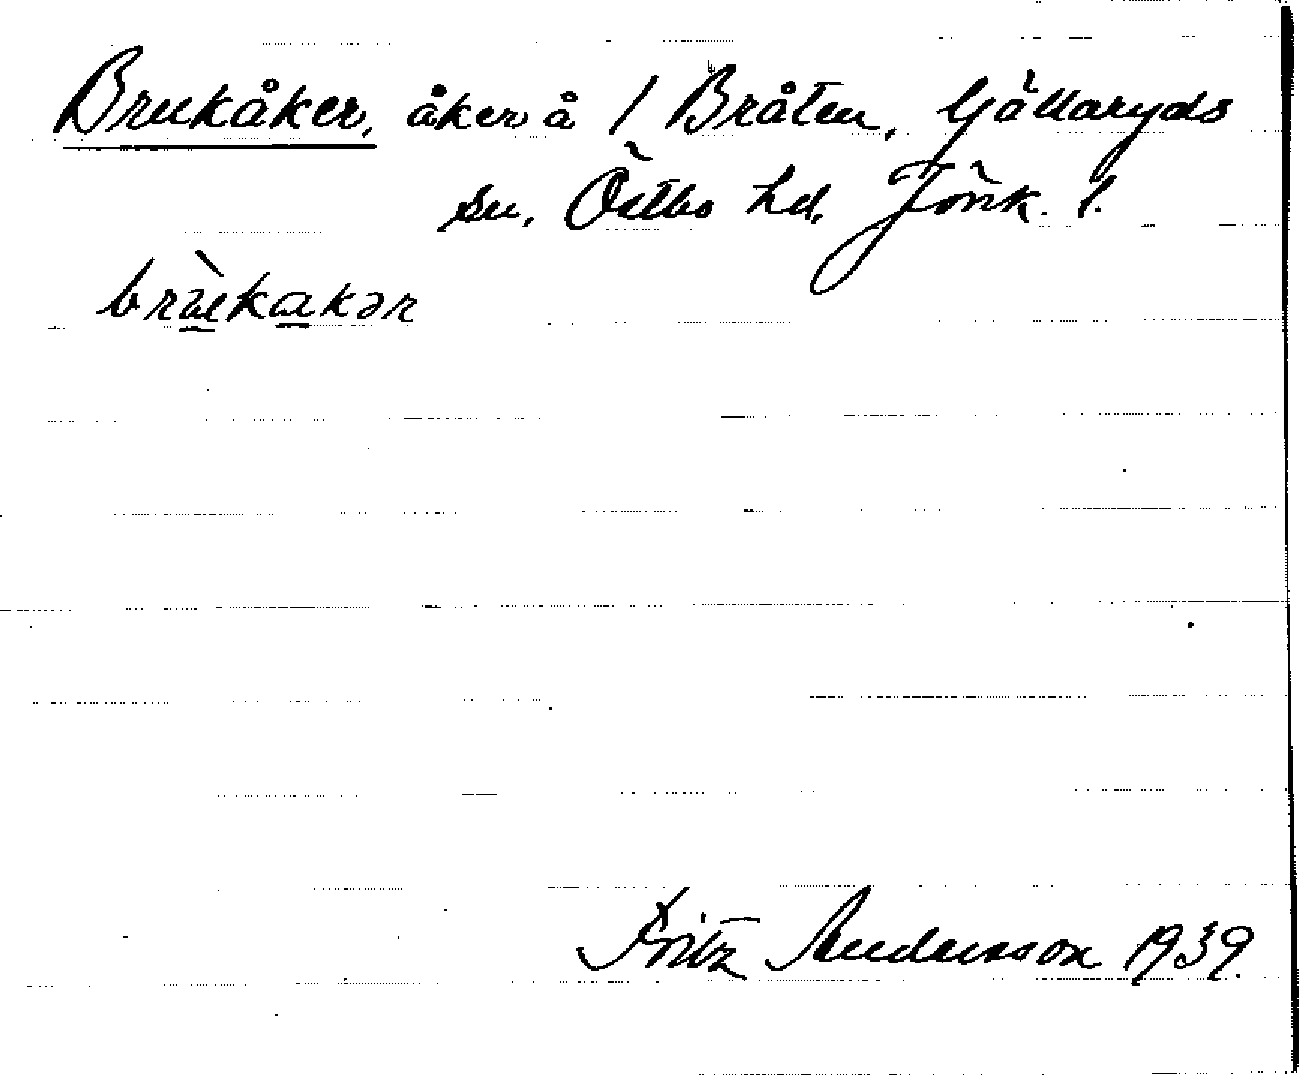 Brukåker, åker å 1 Bråten, Gällaryds
sn, Östbo hd, Jönk. l.
brùkakər
Fritz Andersson 1939.